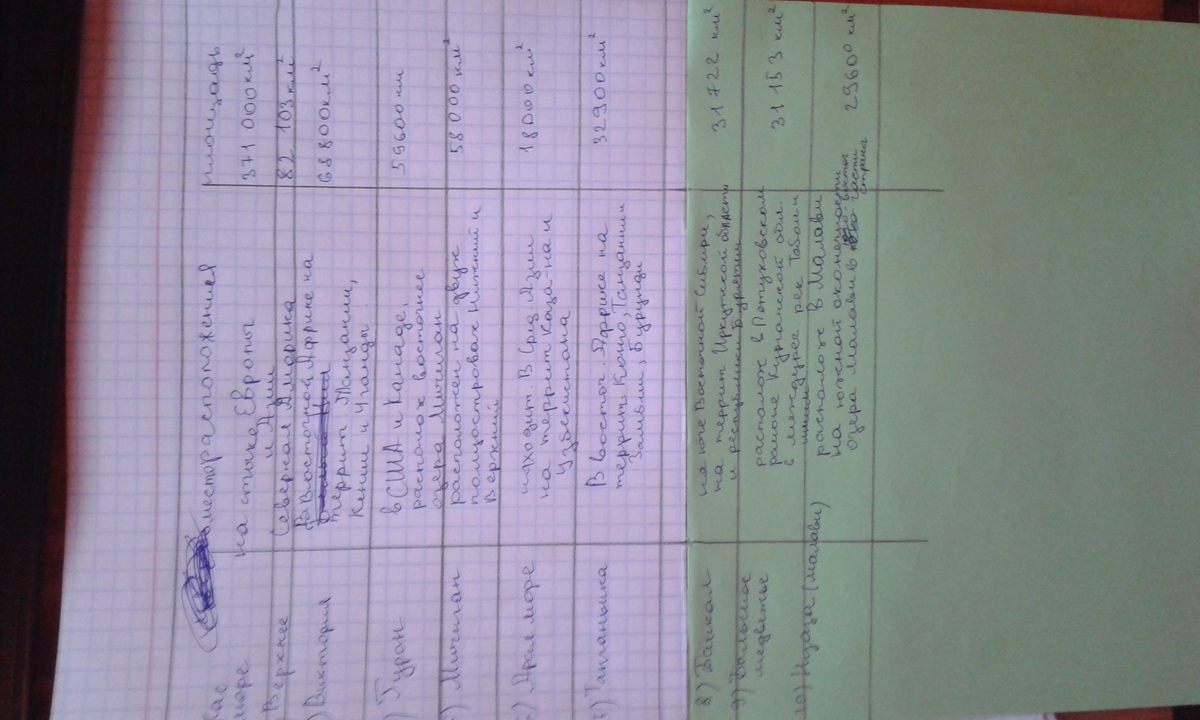 месторасположения площадь
Кас море на стыке Европы и Азии 371 000 км²
Верхнее Северная Америка 82 103 км²
) Виктория В Восточной Африке на
террит Танзании,
Кении и Уганды 68800 км²
) Гурон в США и Канаде,
располож восточнее
озера Мичиган 59600 км
) Мичиган расположен на двух
полуостровах Нижний и
Верхний 58 000 км²
) Арал море находит. В Сред Азии
на террит Каза-на и
Узбекистана 18000 км²
) Танганьика В восточ. Африке на
террит. Конго, Танзании и
Замбии, Бурунди 32900 км²
8) Байкал на юге Восточной Сибири,
на террит Иркутской области
и республики Бурятии 31722 км²
9) Большое
медвежье располож в Петуховском
районе Курганской обл.
в междуреч рек Тобол и
31 153 км²
10) Ньяза (малави) располож в Малави
на южной оконечности
озера Малави в
юго-восточ
части
страны 29600 км²